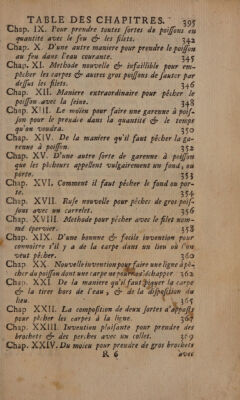 TABLE DES CHAPITRES. 395
Chap. IX. Pour prendre toutes sortes de poissons en
quantité avec le feu & les filets. 342
Chap. X. D'une autre maniere pour prendre le poisson
au feu dans l'eau courante. 345
Chap. XI. Methode nouvelle & infaillible pour em-
pêcher les carpes & autres gros poissons de sauter par
dessus les filets. 346
Chap. XII. Maniere extraordinaire pour pêcher le
poisson avec la seine. 348
Chap. XIII. Le moïen pour faire une garenne à pois-
son pour le prendre dans la quantité & le temps
qu'on voudra. 350
Chap. XIV. De la maniere qu'il faut pêcher la ga-
renne à poisson. 352
Chap. XV. D'une autre sorte de garenne à poisson
que les pêcheurs appellent vulgairement un fond, ou
porte. 353
Chap. XVI. Comment il faut pêcher le fond ou por-
te. 354
Chap. XVII. Ruse nouvelle pour pêcher de gros pois-
sons avec un carrelet. 356
Chap. XVIII. Methode pour pêcher avec le filet nom-
mé épervier. 358
Chap. XIX. D'une bonne & facile invention pour
connoître s'il y a de la carpe dans un lieu où l'on
veut pêcher. 360
Chap. XX. Nouvelle invention pour faire une ligne à pê-
cher du poisson dont une carpe ne pourra échapper 361
Chap. XXI. De la maniere qu'il faut piquer la carpe
& la tirer hors de l'eau, & de la disposition du
lieu. 365
Chap. XXII. La composition de deux sortes d'appasts
pour pêcher les carpes à la ligne. 367
Chap. XXIII. Invention plaisante pour prendre des
brochets & des perches avec un collet. 369
Chap. XXIV. Du moïen pour prendre de gros brochets
R 6 avec